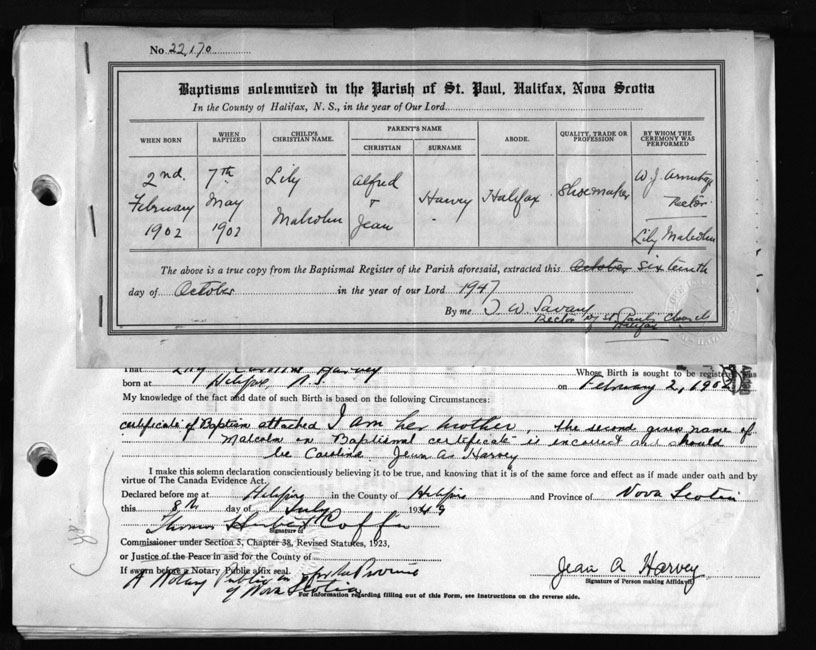 No 22,170
Baptisms solemnized in the Parish of St. Paul, Halifax, Nova Scotia
In the County of Halifax, N. S., in the year of Our Lord
WHEN BORN
WHEN BAPTIZED
CHILD'S CHRISTIAN NAME.
PARENT'S NAME
CHRISTIAN
SURNAME
ABODE.
QUALITY, TRADE OR PROFESSION
BY WHOM THE CEREMONY WAS PERFORMED
2nd. February 1902
7th May 1902
Lily Malcolm
Alfred + Jean
Harvey
Halifax
Shoemaker
W. J. Armitage Rector
Lily Malcolm
The above is a true copy from the Baptismal Register of the Parish aforesaid, extracted this October sixteenth
day of October in the year of our Lord 1947
By me T. W. Savary
Rector of St Paul's Church
Halifax
That Lily Caroline Harvey Whose Birth is sought to be registered was
born at Halifax, N.S. on February 2, 1902
My knowledge of the fact and date of such Birth is based on the following Circumstances:
certificate of Baptism attached I am her mother, the second given name of
Malcolm on Baptismal certificate is incorrect and should
be Caroline Jean A Harvey
I make this solemn declaration conscientiously believing it to be true, and knowing that it is of the same force and effect as if made under oath and by
virtue of The Canada Evidence Act.
Declared before me at Halifax in the County of Halifax and Province of Nova Scotia
this 8th day of July 1949
Thomas Herbert Coffin
Signature of
Commissioner under Section 3, Chapter 38, Revised Statutes, 1923,
or Justice of the Peace in and for the County of
If sworn before a Notary Public affix seal.
A Notary Public in + for the Province
of Nova Scotia
Jean A Harvey
Signature of Person making Affidavit
For information regarding filling out of this Form, see instructions on the reverse side.